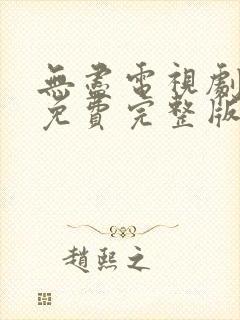 無盡電視劇
免費完整版
趙熙之